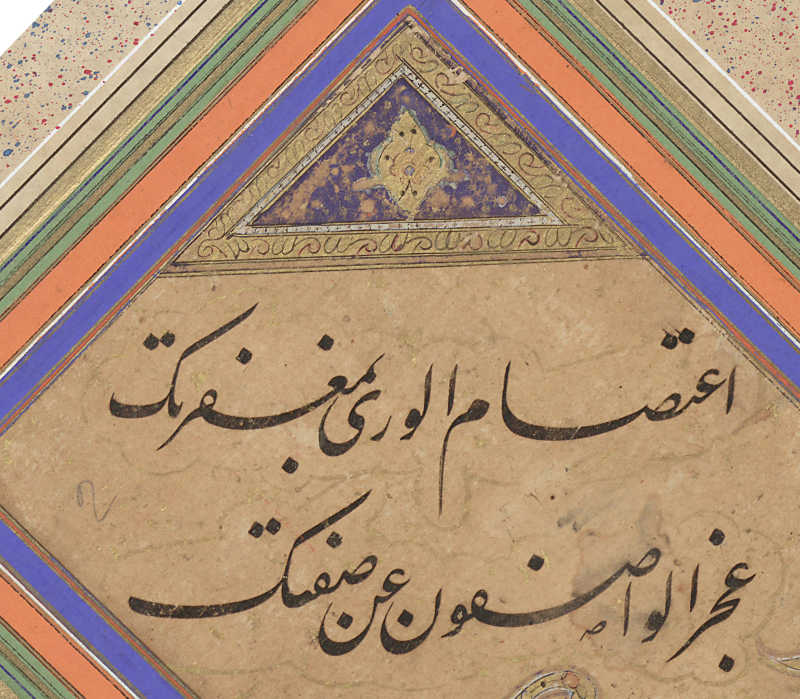 اعتصام الوری بمغفرتک
عجز الواصفون عن صفتک